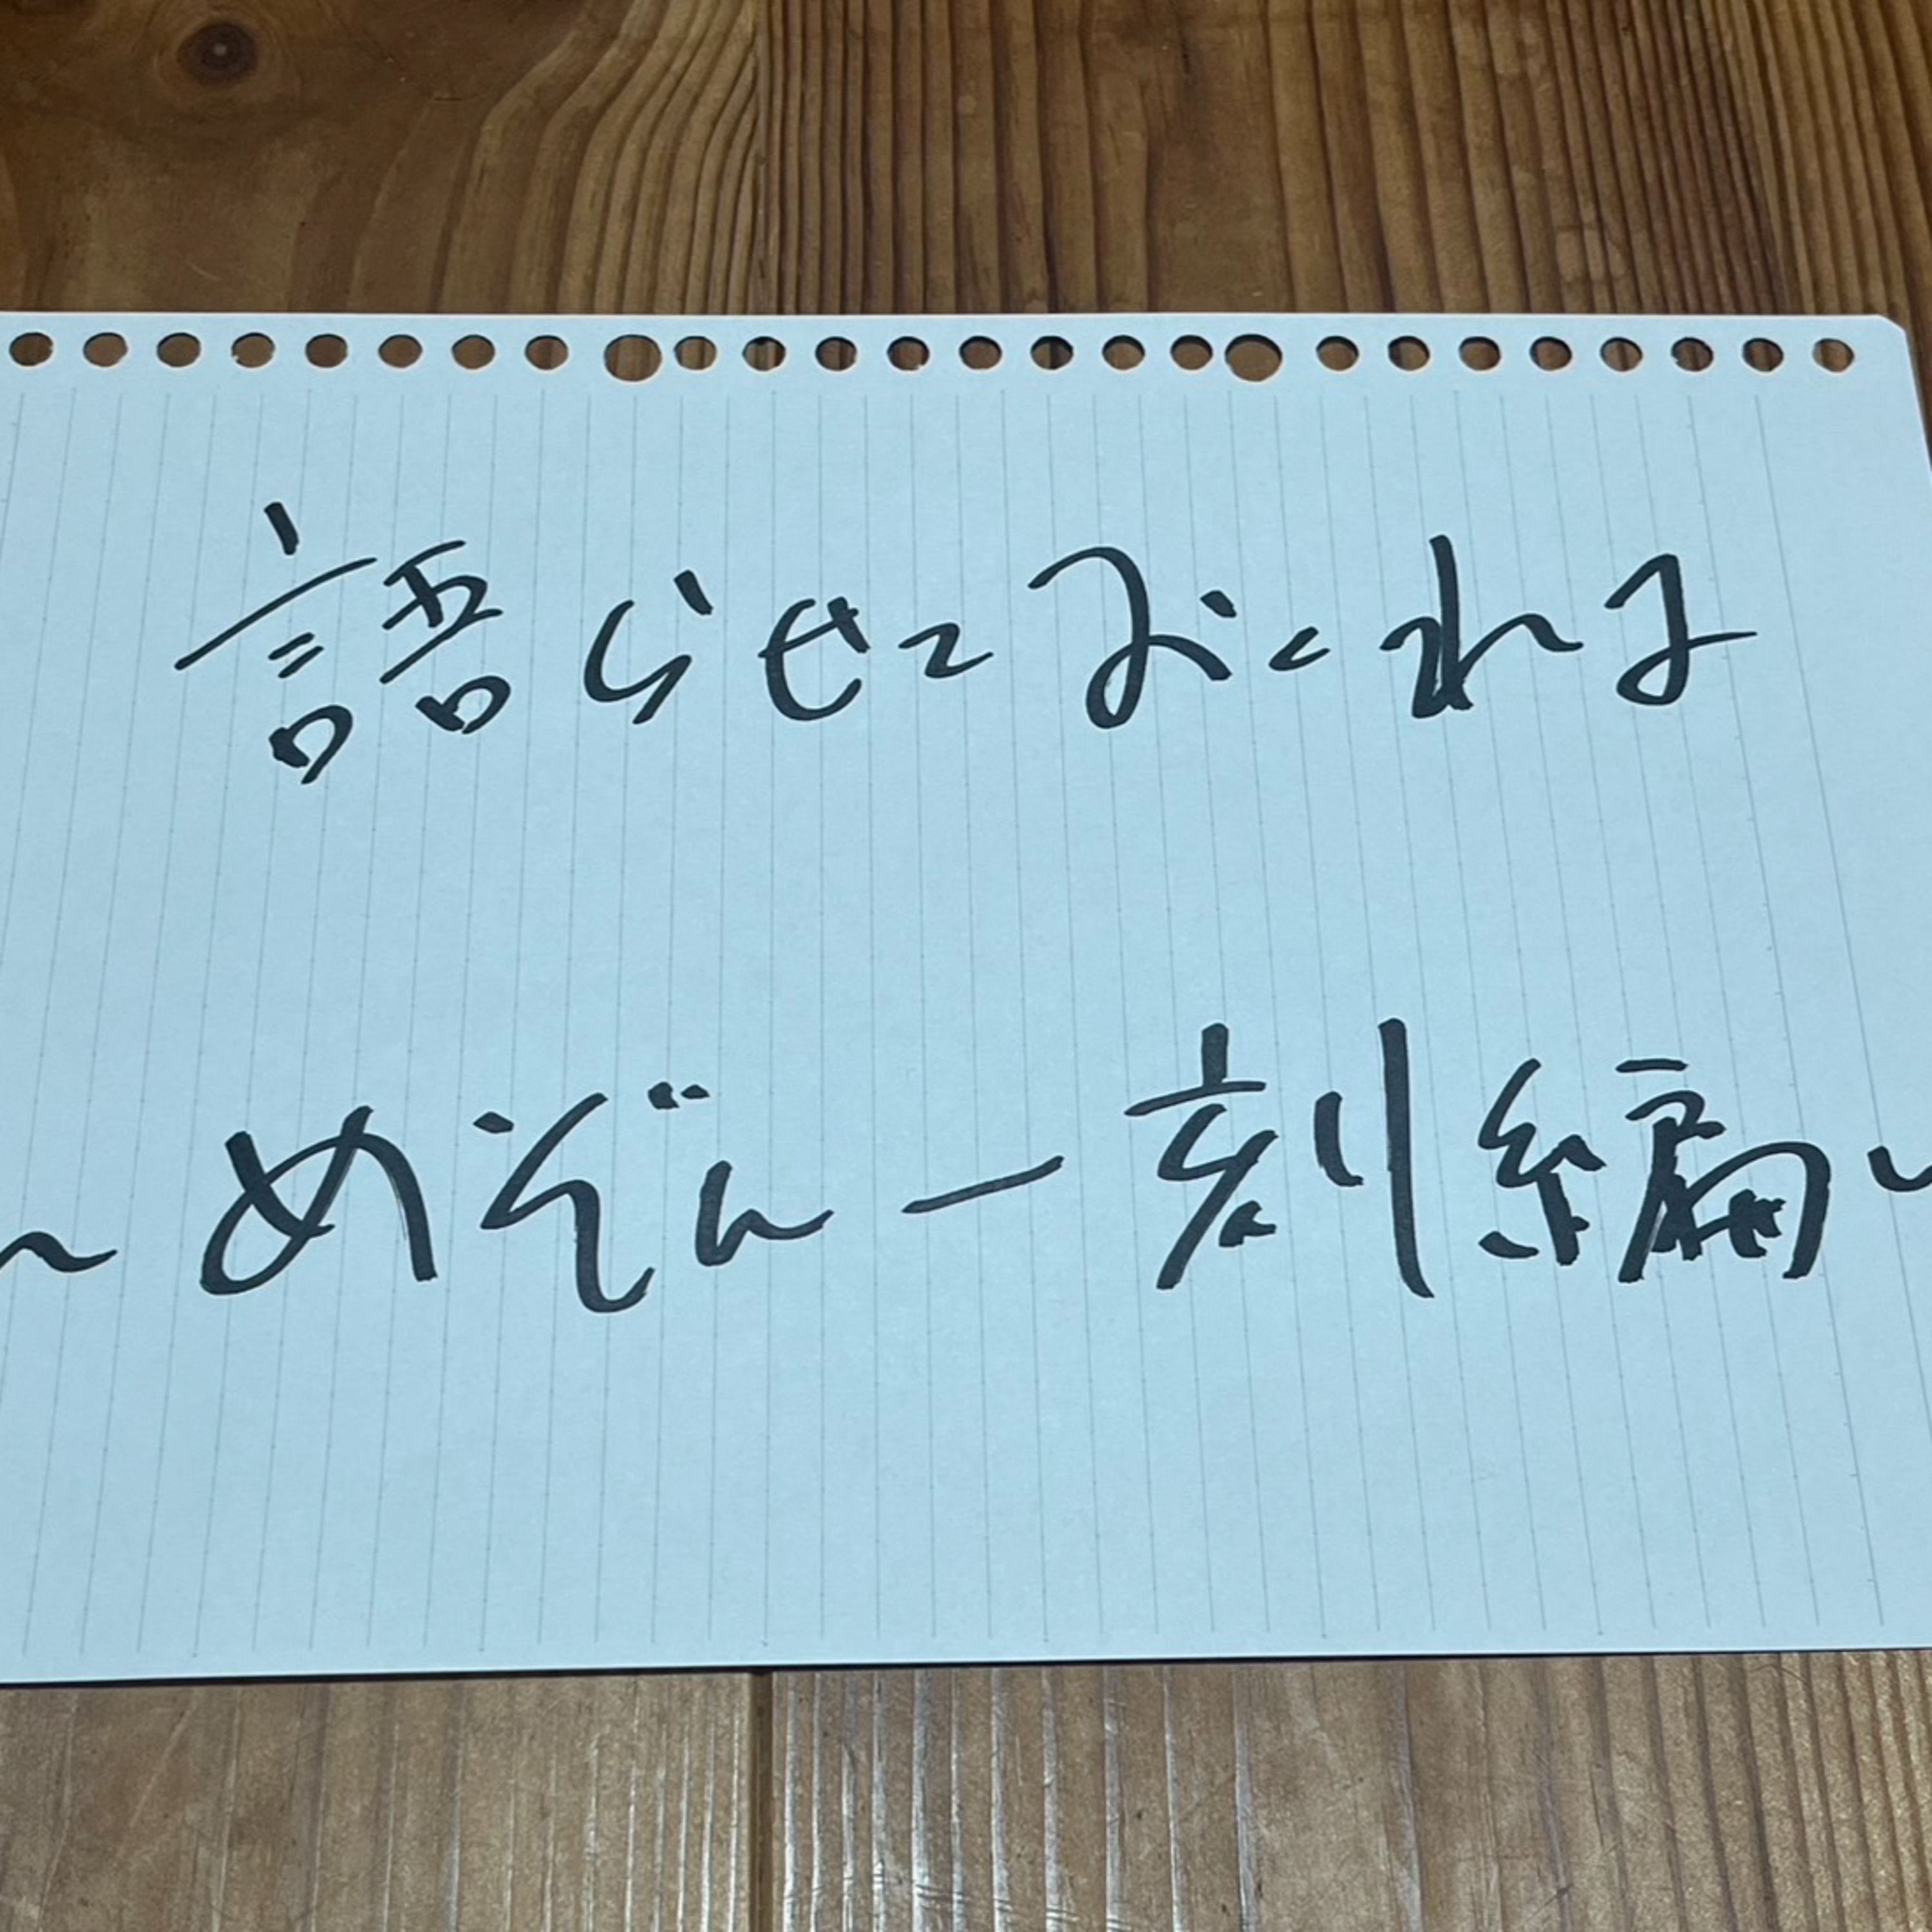 語らせておくれよ
～めぞん一刻編～